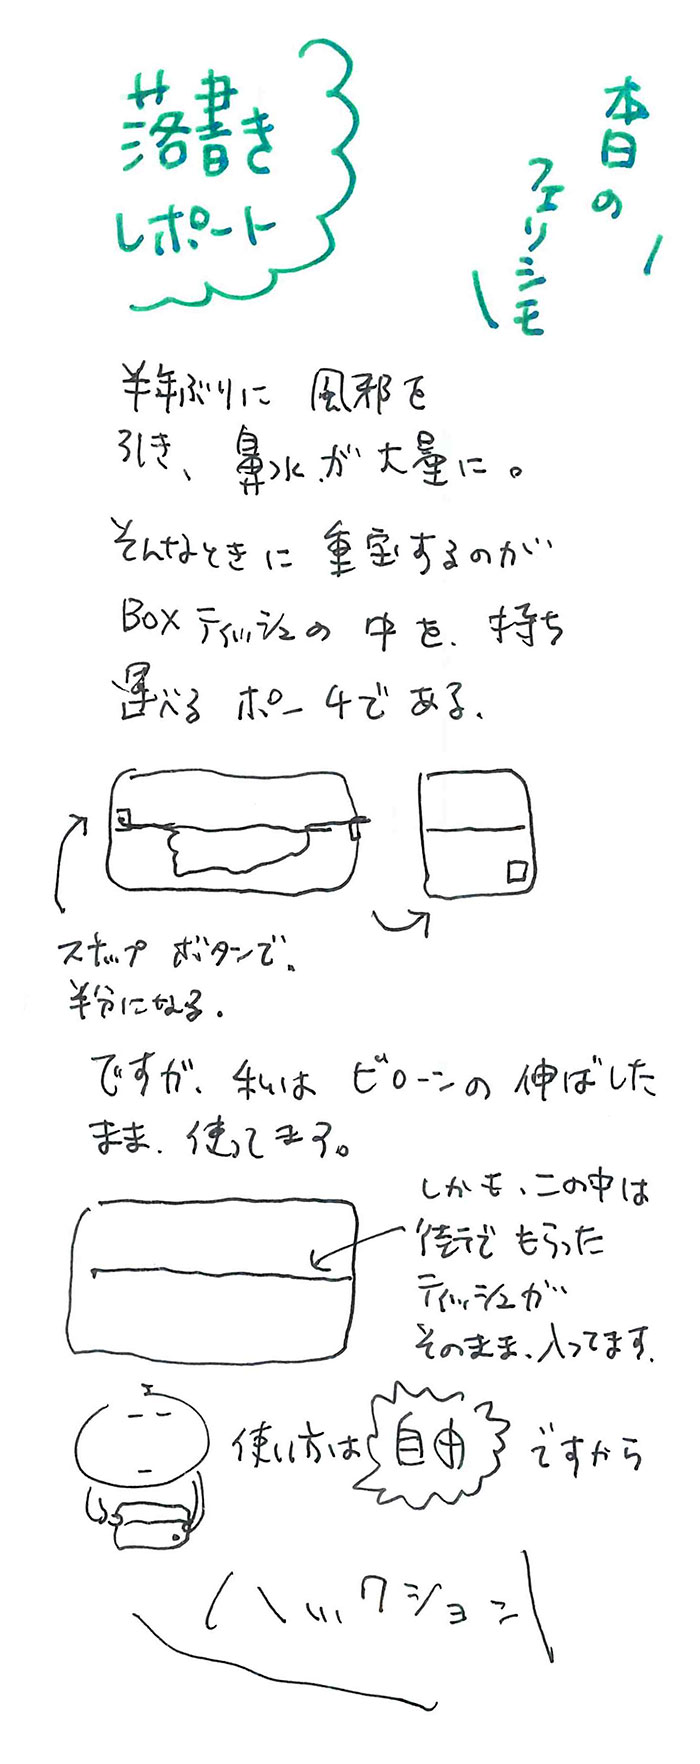 本日の
フェリシモ
落書き
レポート
半年ぶりに 風邪を
引き、鼻水が大量に。
そんなときに 重宝するのが
BOXティッシュの 中を、持ち
運べる ポーチで ある。
スナップ ボタンで、
半分になる。
ですが、私は ビローンの 伸ばした
まま、使ってます。
しかも、この中は
街でもらった
ティッシュが
そのまま、入ってます。
使い方は 自由 ですから
ハックション